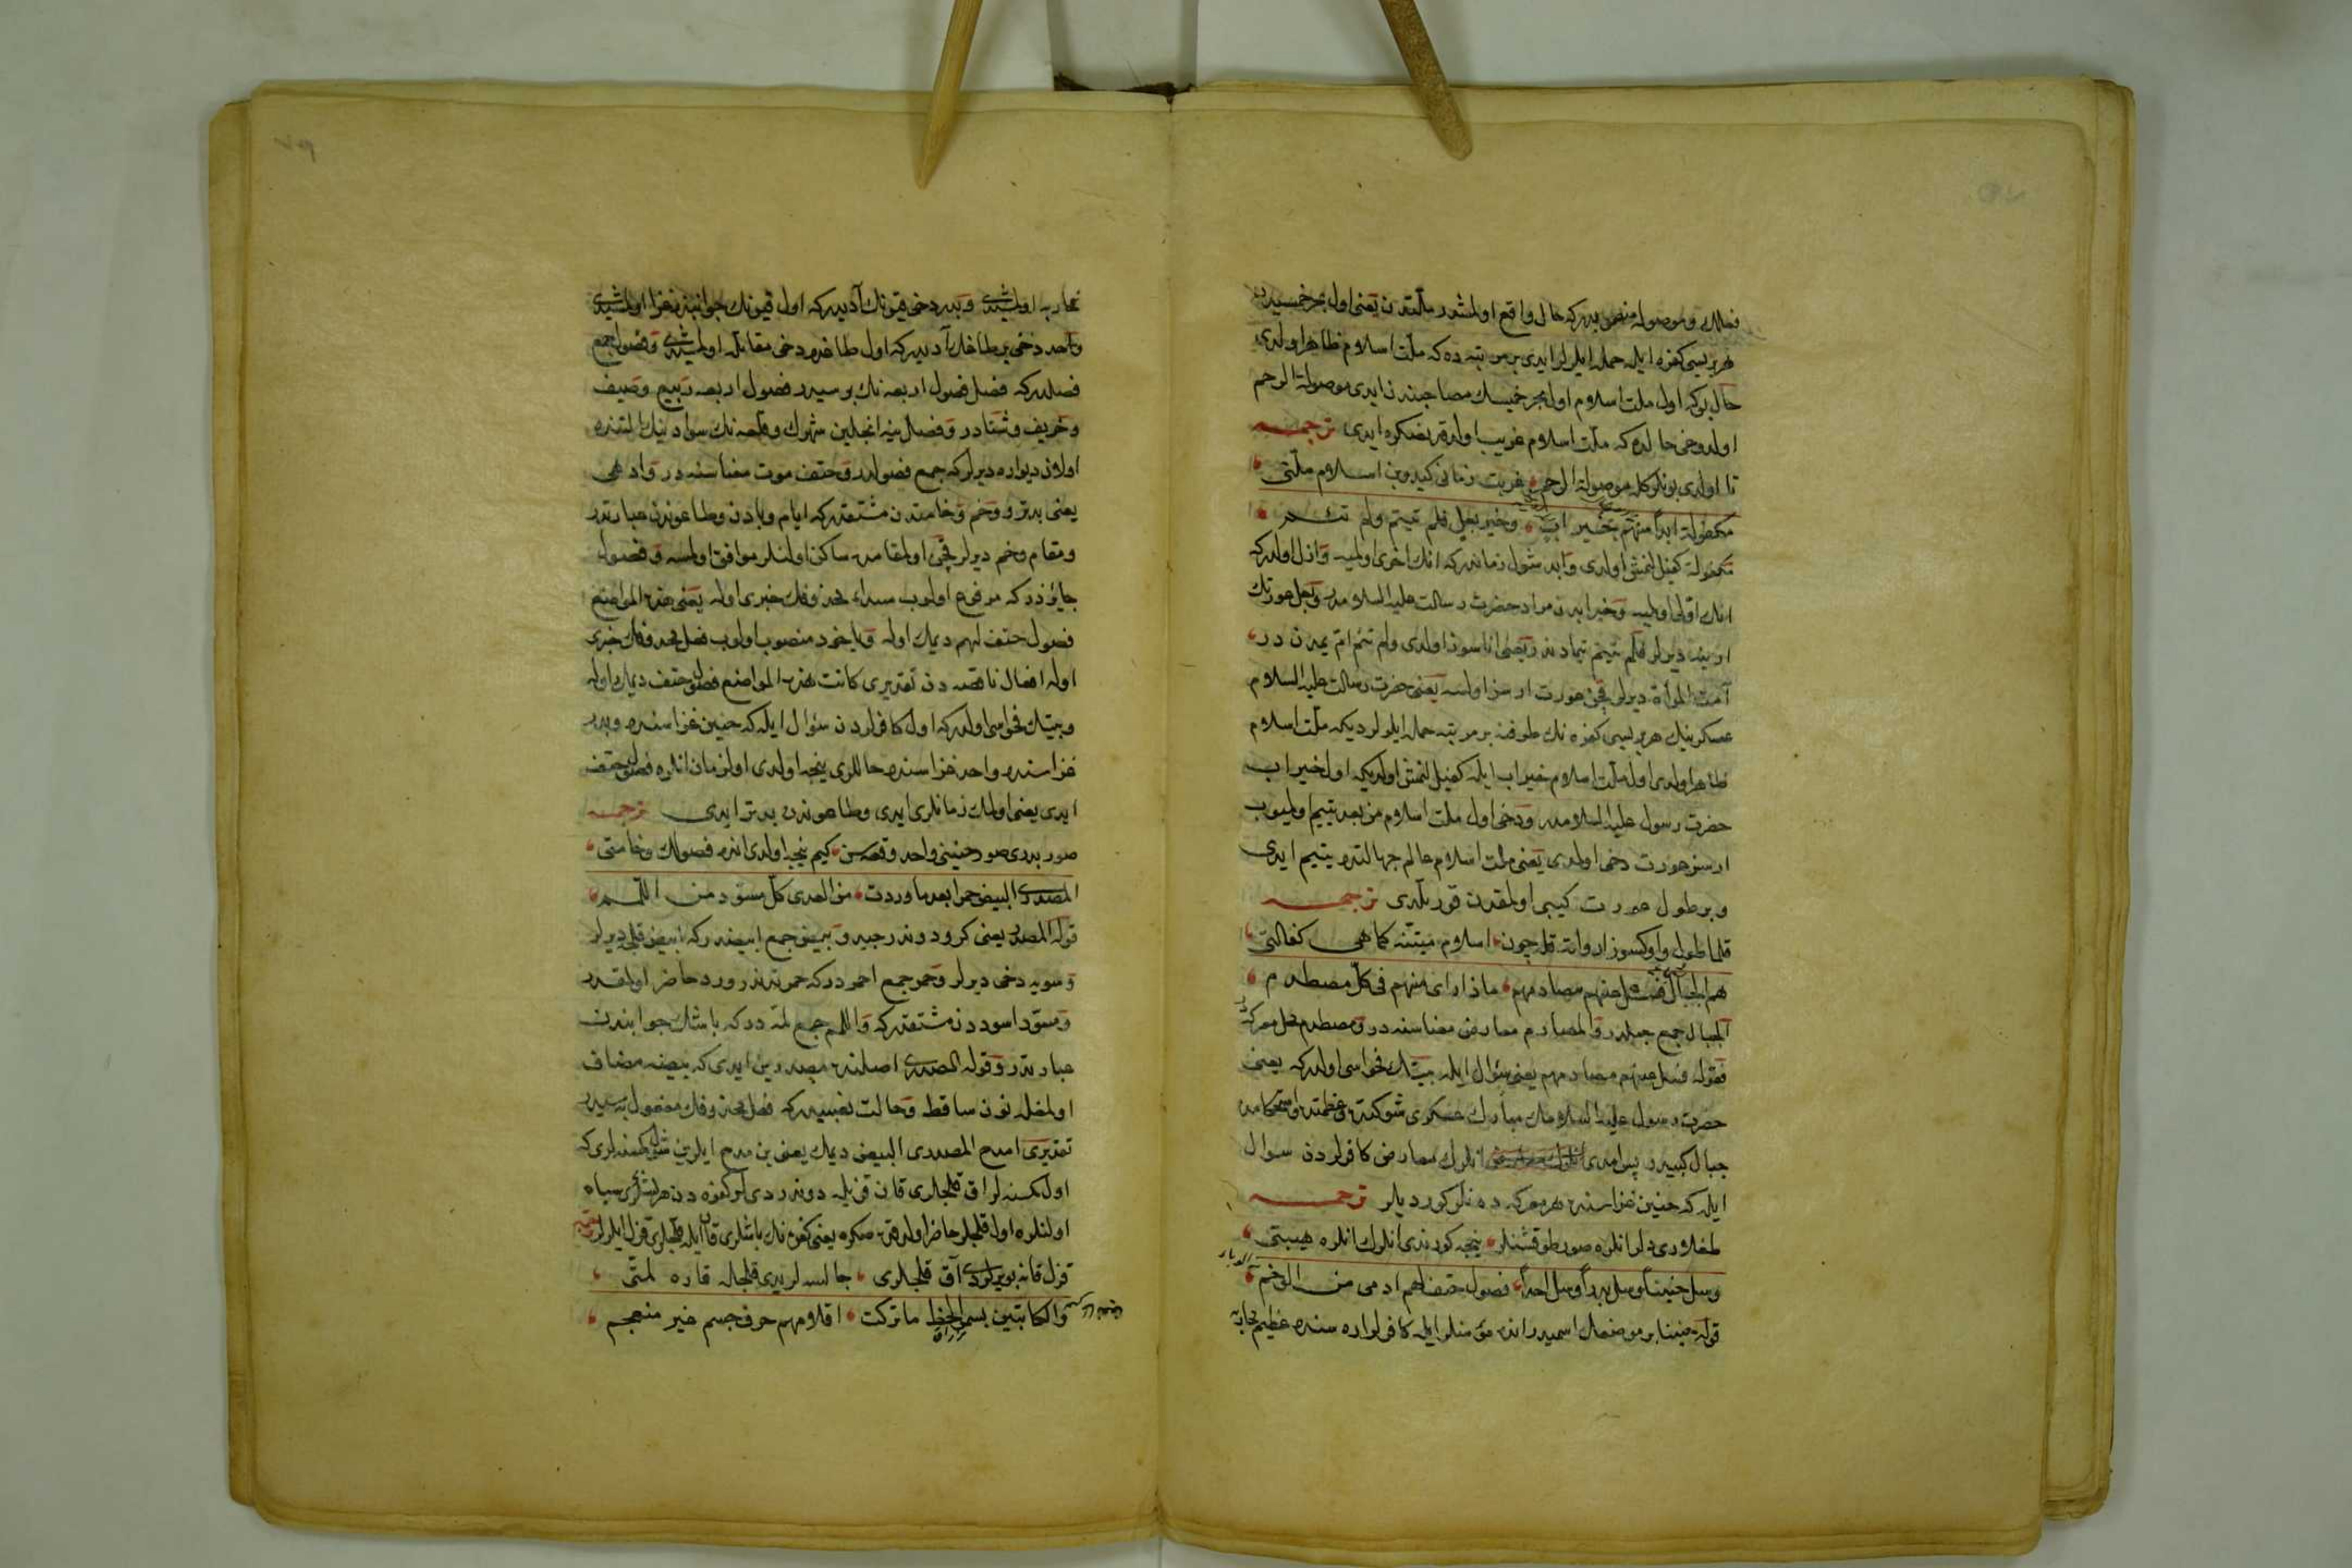 فعلك وموصوله منصوبدر كه حال واقع اولمشدر ملتدن يعنى اول بحر خميسدن
هر بريسى كفره ايله حمله ايلرلر ايدى بر مرتبه ده كه ملت اسلام ظاهر اولدى
حال بو كه اول ملت اسلام اول بحر خميسك مصاحبندن ايدى موصولة الرحم
اولدوغى حالده كه ملت اسلام غريب اولدقدنصكره ايدى ترجمه
تا اولدى بونلركله موصولة الرحم غربت زمانى كيدوب اسلام ملتى
مكفولة ابدا منهم بخير اب وخير بعل فلم تيتم ولم تئم
مكفولة كفيل لنمش اولدى وابد شول زماندر كه انك اخرى اولميه وازل اولدر كه
انك اولى اولميه وخير ابدن مراد حضرت رسالت عليه السلامدر وبعل عورتك
ارينه ديرلر فلم تيتم يتمادندر يعنى اناسوز اولدى ولم تئم ائم يمدن در
آمت المرأة ديرلر قچن عورت ارسز اولسه يعنى حضرت رسالت عليه السلام
عسكرينك هر بريسى كفره نك طرفنه بر مرتبه حمله ايلرلرديكه ملت اسلام
ظاهر اولدى اول ملت اسلام خير اب ايله كفيل لنمش اولديكه اول خير اب
حضرت رسول عليه السلامدر ودخى اول ملت اسلام من بعد يتيم اولميوب
ارسز عورت دخى اولمدى يعنى ملت اسلام عالم جهالتده يتيم ايدى
وبر طول عورت كيبى اولمقدن قورتلدى ترجمه
قلما طول واوكسوز ار واته قلر چون اسلام ميتنه كماهى كفالتى
هم الجبال فسل عنهم مصادمهم ماذا راى منهم فى كل مصطدم
الجبال جمع جبلدر والمصادم معارض معناسنه در ومصطدم محل معركه در
فقوله فسل عنهم مصادمهم يعنى سؤال ايله بيتك فحواسى اولدر كه يعنى
حضرت رسول عليه السلامك مبارك عسكرى شوكتده وعظمتده واستحكامده
جبال كيبيدر پس امدى انلرك معارض كافرلردن سوال
ايله كه حنين غزاسنده هر معركه ده نلر كورديلر ترجمه
طاغلر ايدى انلره صور طوقشنلر نيجه كورندى انلرك انلره هيبتى
وسل حنينا وسل بدرا وسل احدا فصول حتف لهم ادهى من الوخم
قوله حنينا بر موضعك اسميدر انده مؤمنلر ايله كافرلر اره سنده عظيم محاربه
محاربه اولمشيدى وبدر دخى قيونك آديدر كه اول قيونك جوانبنده غزا اولمشيدى
واحد دخى بر طاغك آديدر كه اول طاغده دخى مقاتله اولمشيدى وفصول جمع
فصلدر كه فصل فصول اربعه نك بريسيدر فصول اربعه ربيع وصيف
وخريف وشتادر وفصل ينه انجلين شهرك وقلعه نك سوادنيك التنده
اولان ديواره ديرلر كه جمع فصولدر وحتف موت معناسنه در وادهى
يعنى بدتر ووخم وخامتدن مشتقدر كه ايام وبادن وطاعوندن عبارتدر
ومقام وخم ديرلر قچن اول مقامده ساكن اولنلر موافق اولمسه وفصول
جايزدر كه مرفوع اولوب مبتداء محذوفك خبرى اوله يعنى هذه المواضع
فصول حتف لهم ديمك اوله وياخود منصوب اولوب فعل محذوفك خبرى
اوله افعال ناقصه دن تقديرى كانت هذه المواضع فصول حتف ديمك اوله
وبيتك فحواسى اولدر كه اول كافرلردن سؤال ايله كه حنين غزاسنده وبدر
غزاسنده واحد غزاسنده حاللرى نيجه اولدى اول زمان انلره فصول حتف
ايدى يعنى اولمك زمانلرى ايدى وطاعوندن بدتر ايدى ترجمه
صور بدرى صور حنينى واحد وقعه سن كيم نيجه اولدى انده فصولك وخامتى
المصدرى البيض حمرا بعد ما وردت من العدى كل مسود من اللمم
قوله المصدر يعنى كرو دوندرجيدر وبيض جمع ابيضدر كه ابيض قليج ديرلر
وسويه دخى ديرلر وحمر جمع احمردر كه حمرتدندر ورود حاضر اولمقدر
ومسود اسوددن مشتقدر كه واللمم جمع لمه در كه باشك جوانبندن
عبارتدر وقوله المصدرى اصلنده مصدرين ايدى كه بيضه مضاف
اولمغله نون ساقط وحالت نصبيدر كه فعل محذوفك مفعول به سيدر
تقديرى امدح المصدرى البيض ديمك يعنى بن مدح ايلرين شول كمسنه لرى كه
اول كمسنه لر اق قلجلرى قان قزيله دوندردى لر كفره دن هر باشلرى سياه
اولنلره اول قلجلر حاضر اولدقدنصكره يعنى كفره نك باشلرى قان ايله قلجلرى قزل ايلرلر ترجمه
قزل قانه بويرلردى آق قلجلرى جالسه لر يدى قلجاله قاره لمتى
والكاتبين بسمر الخط ما تركت اقلامهم حرف جسم غير منعجم